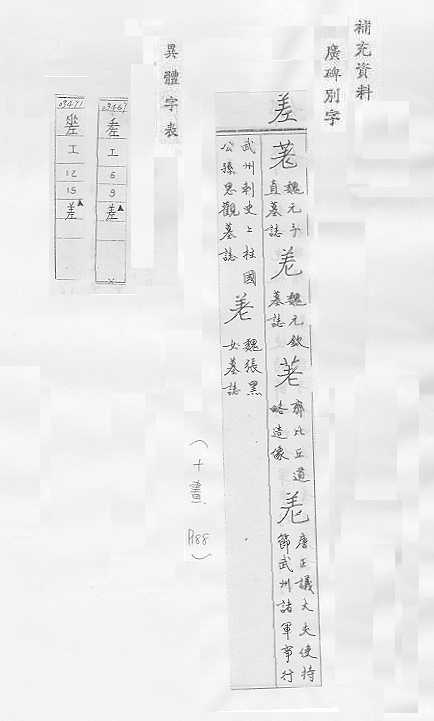 補充資料
廣碑別字
差
魏元子
直墓誌
魏元欽
墓誌
齊比丘道
略造像
唐正議大夫使持
節武州諸軍事行
武州刺史上柱國
公孫思觀墓誌
魏張黑
女墓誌
(十畫 P.188)
異體字表
09469
工
6
9
差▲
09471
工
12
15
差▲